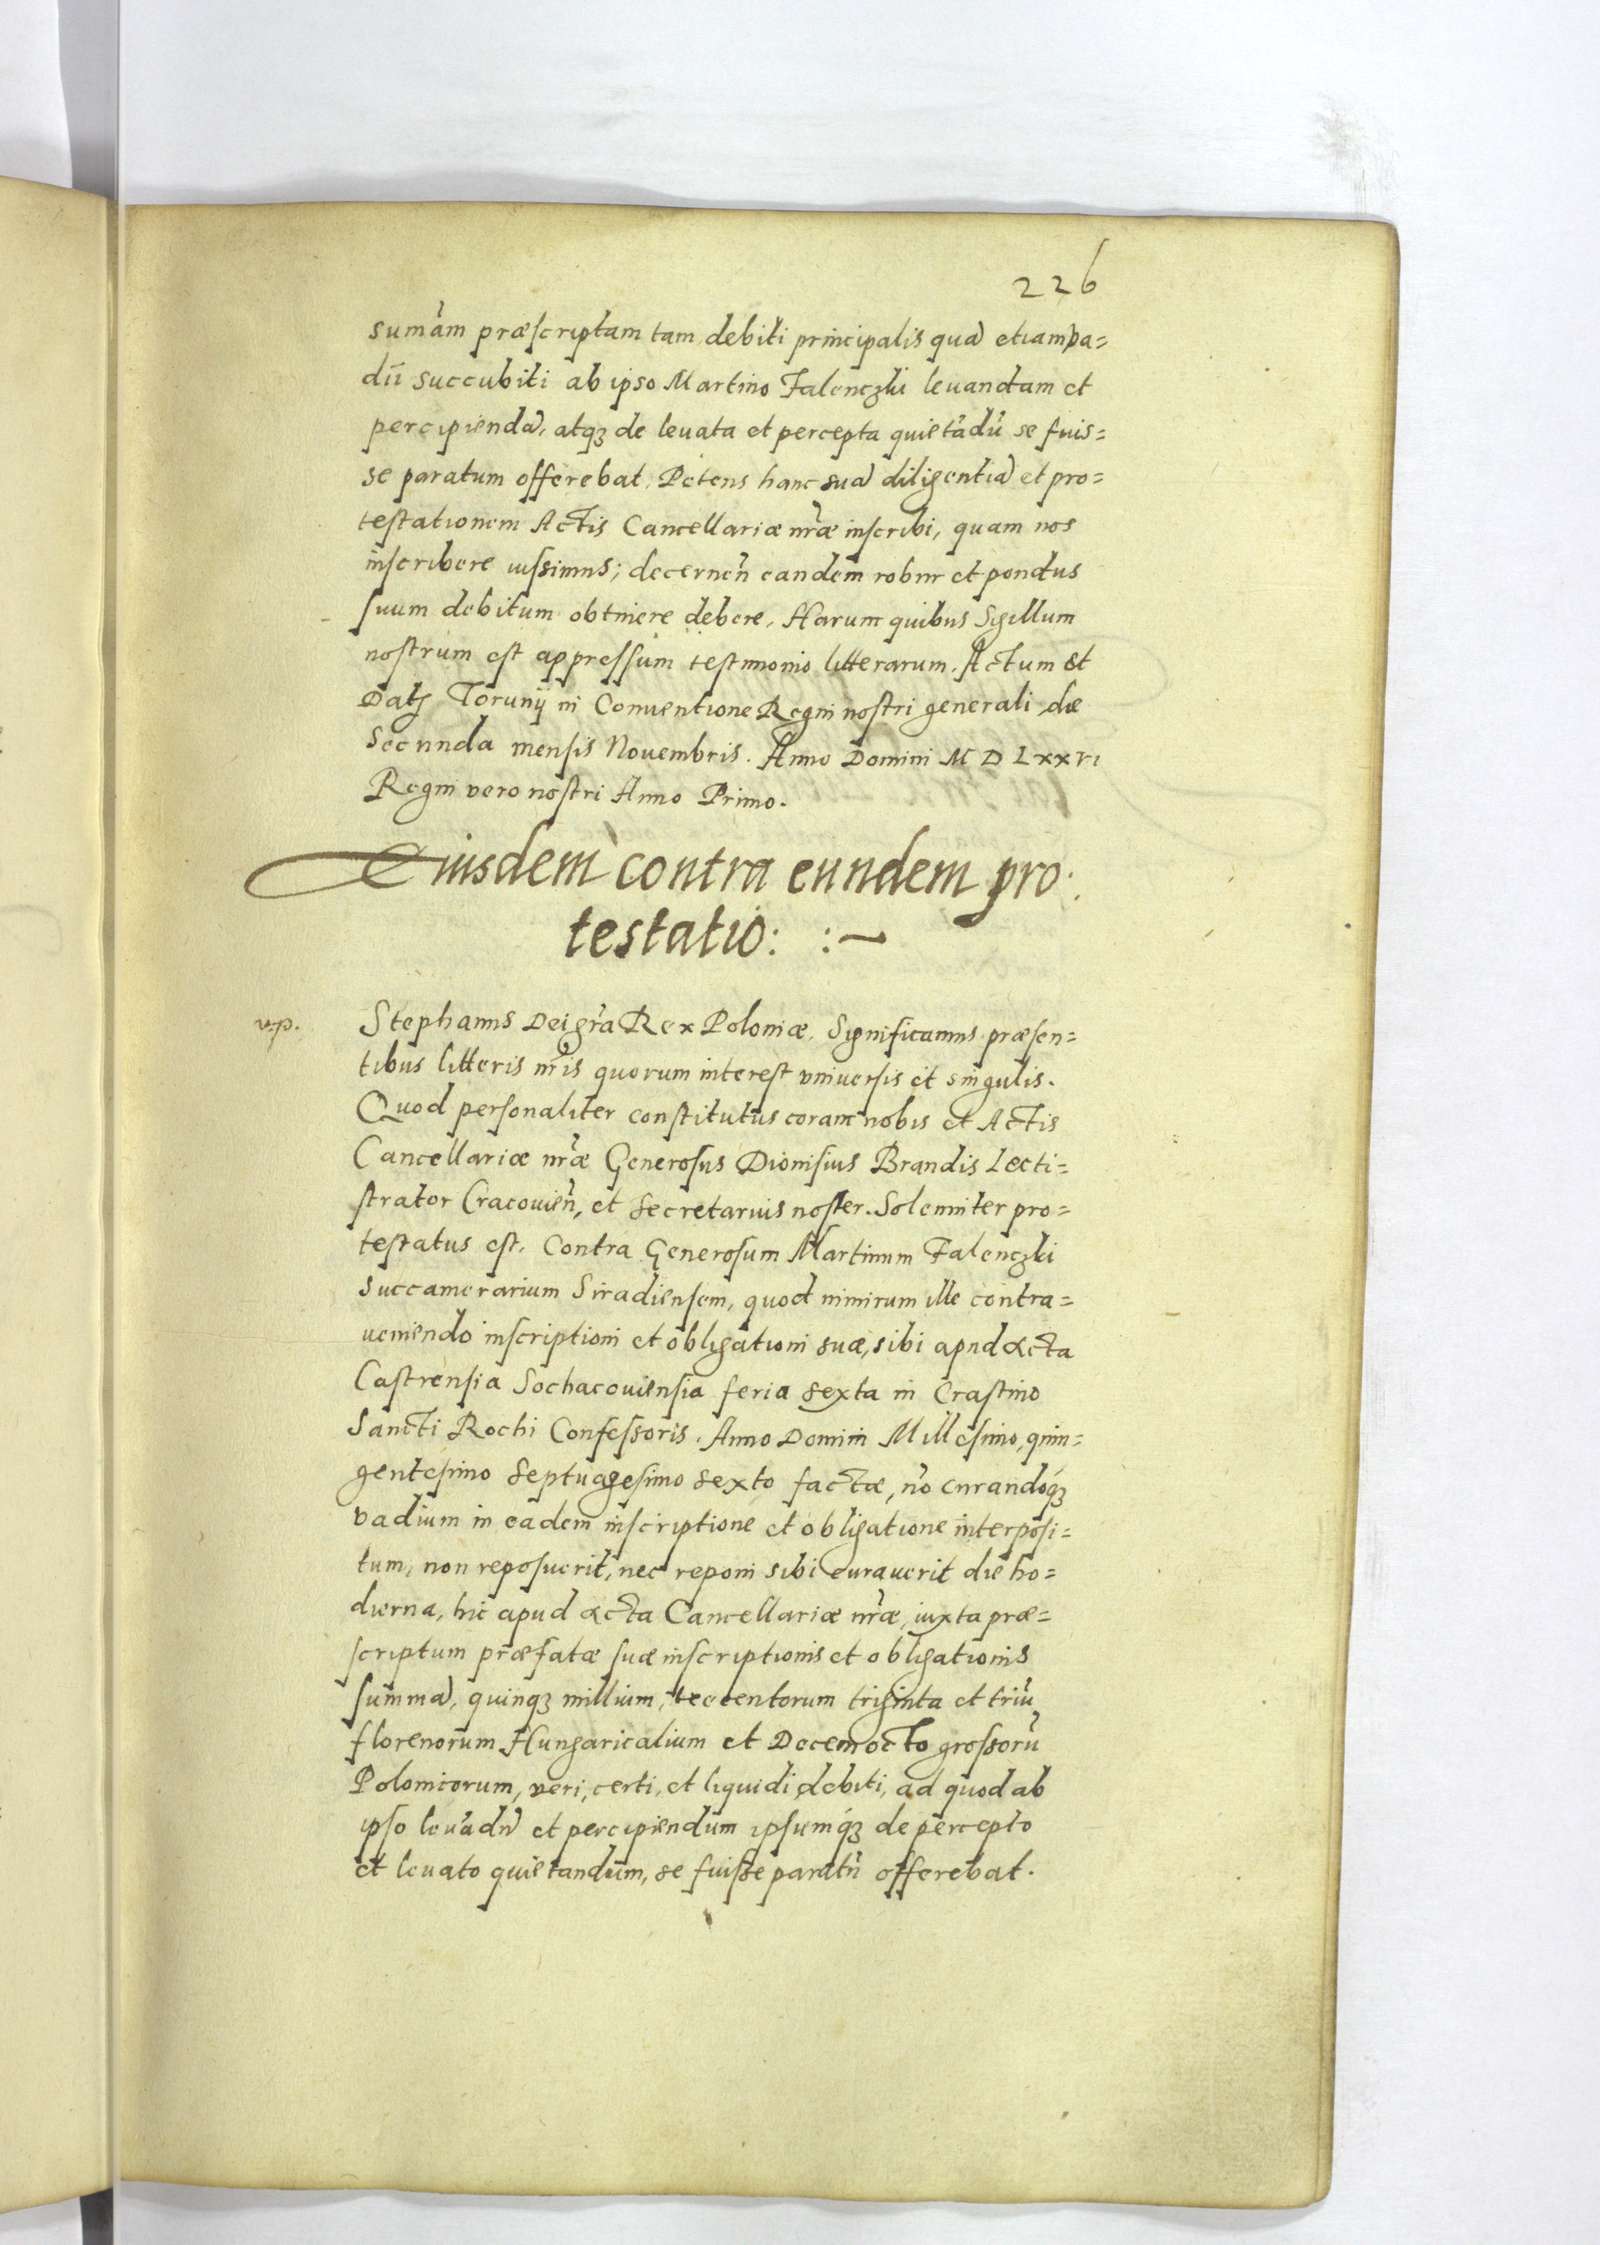 226
sumam̃ præscriptam tam debiti principalis quã etiam pa=
dii succubiti ab ipso Martino Falenczki leuandam et
percipiendã, atqꝫ de leuata et percepta quietãdũ se fuis=
se paratum offerebat. Petens hanc suã diligentiã et pro=
testationem Actis Cancellariæ nr̃æ inscribi, quam nos
inscribere iussimus; decernen̄ eandem robur et pondus
suum debitum obtinere debere. Harum quibus Sigillum
nostrum est appressum testimonio litterarum. Actum et
Datꝫ Torunij in Conuentione Regni nostri generali die
Secunda mensis Nouembris. Anno Domini M D LXXVI
Regni vero nostri Anno Primo.
Eiusdem contra eundem pro:
testatio: :~
Stephanus Dei gr̃a Rex Poloniæ. Significamus præsen=
tibus litteris nr̃is quorum interest vniuersis et singulis.
Quod personaliter constitutus coram nobis et Actis
Cancellariæ nr̃æ Generosus Dionisius Brandis Lecti=
strator Cracouien̄, et Secretarius noster. Solemniter pro=
testatus est. Contra Generosum Martinum Falenczki
Succamerarium Siradiensem, quod nimirum ille contra=
ueniendo inscriptioni et obligationi suæ, sibi apud Acta
Castrensia Sochacouiensia feria sexta in Crastino
Sancti Rochi Confessoris. Anno Domini Millesimo, quin=
gentesimo Septuagesimo sexto factæ, nõ curandóqꝫ
vadium in eadem inscriptione et obligatione interposi=
tum, non reposuerit, nec reponi sibi curauerit die ho=
dierna, hic apud Acta Cancellariæ nr̃æ, iuxta præ=
scriptum præfatæ suæ inscriptionis et obligationis
summã, quinqꝫ millium, tecentorum triginta et triũ
florenorum Hungaricalium et Decemocto grossorũ
Polonicorum, veri, certi, et liquidi debiti, ad quod ab
ipso leuãdũ et percipiendum ipsumqꝫ de percepto
et leuato quietandum, se fuisse paratũ offerebat.